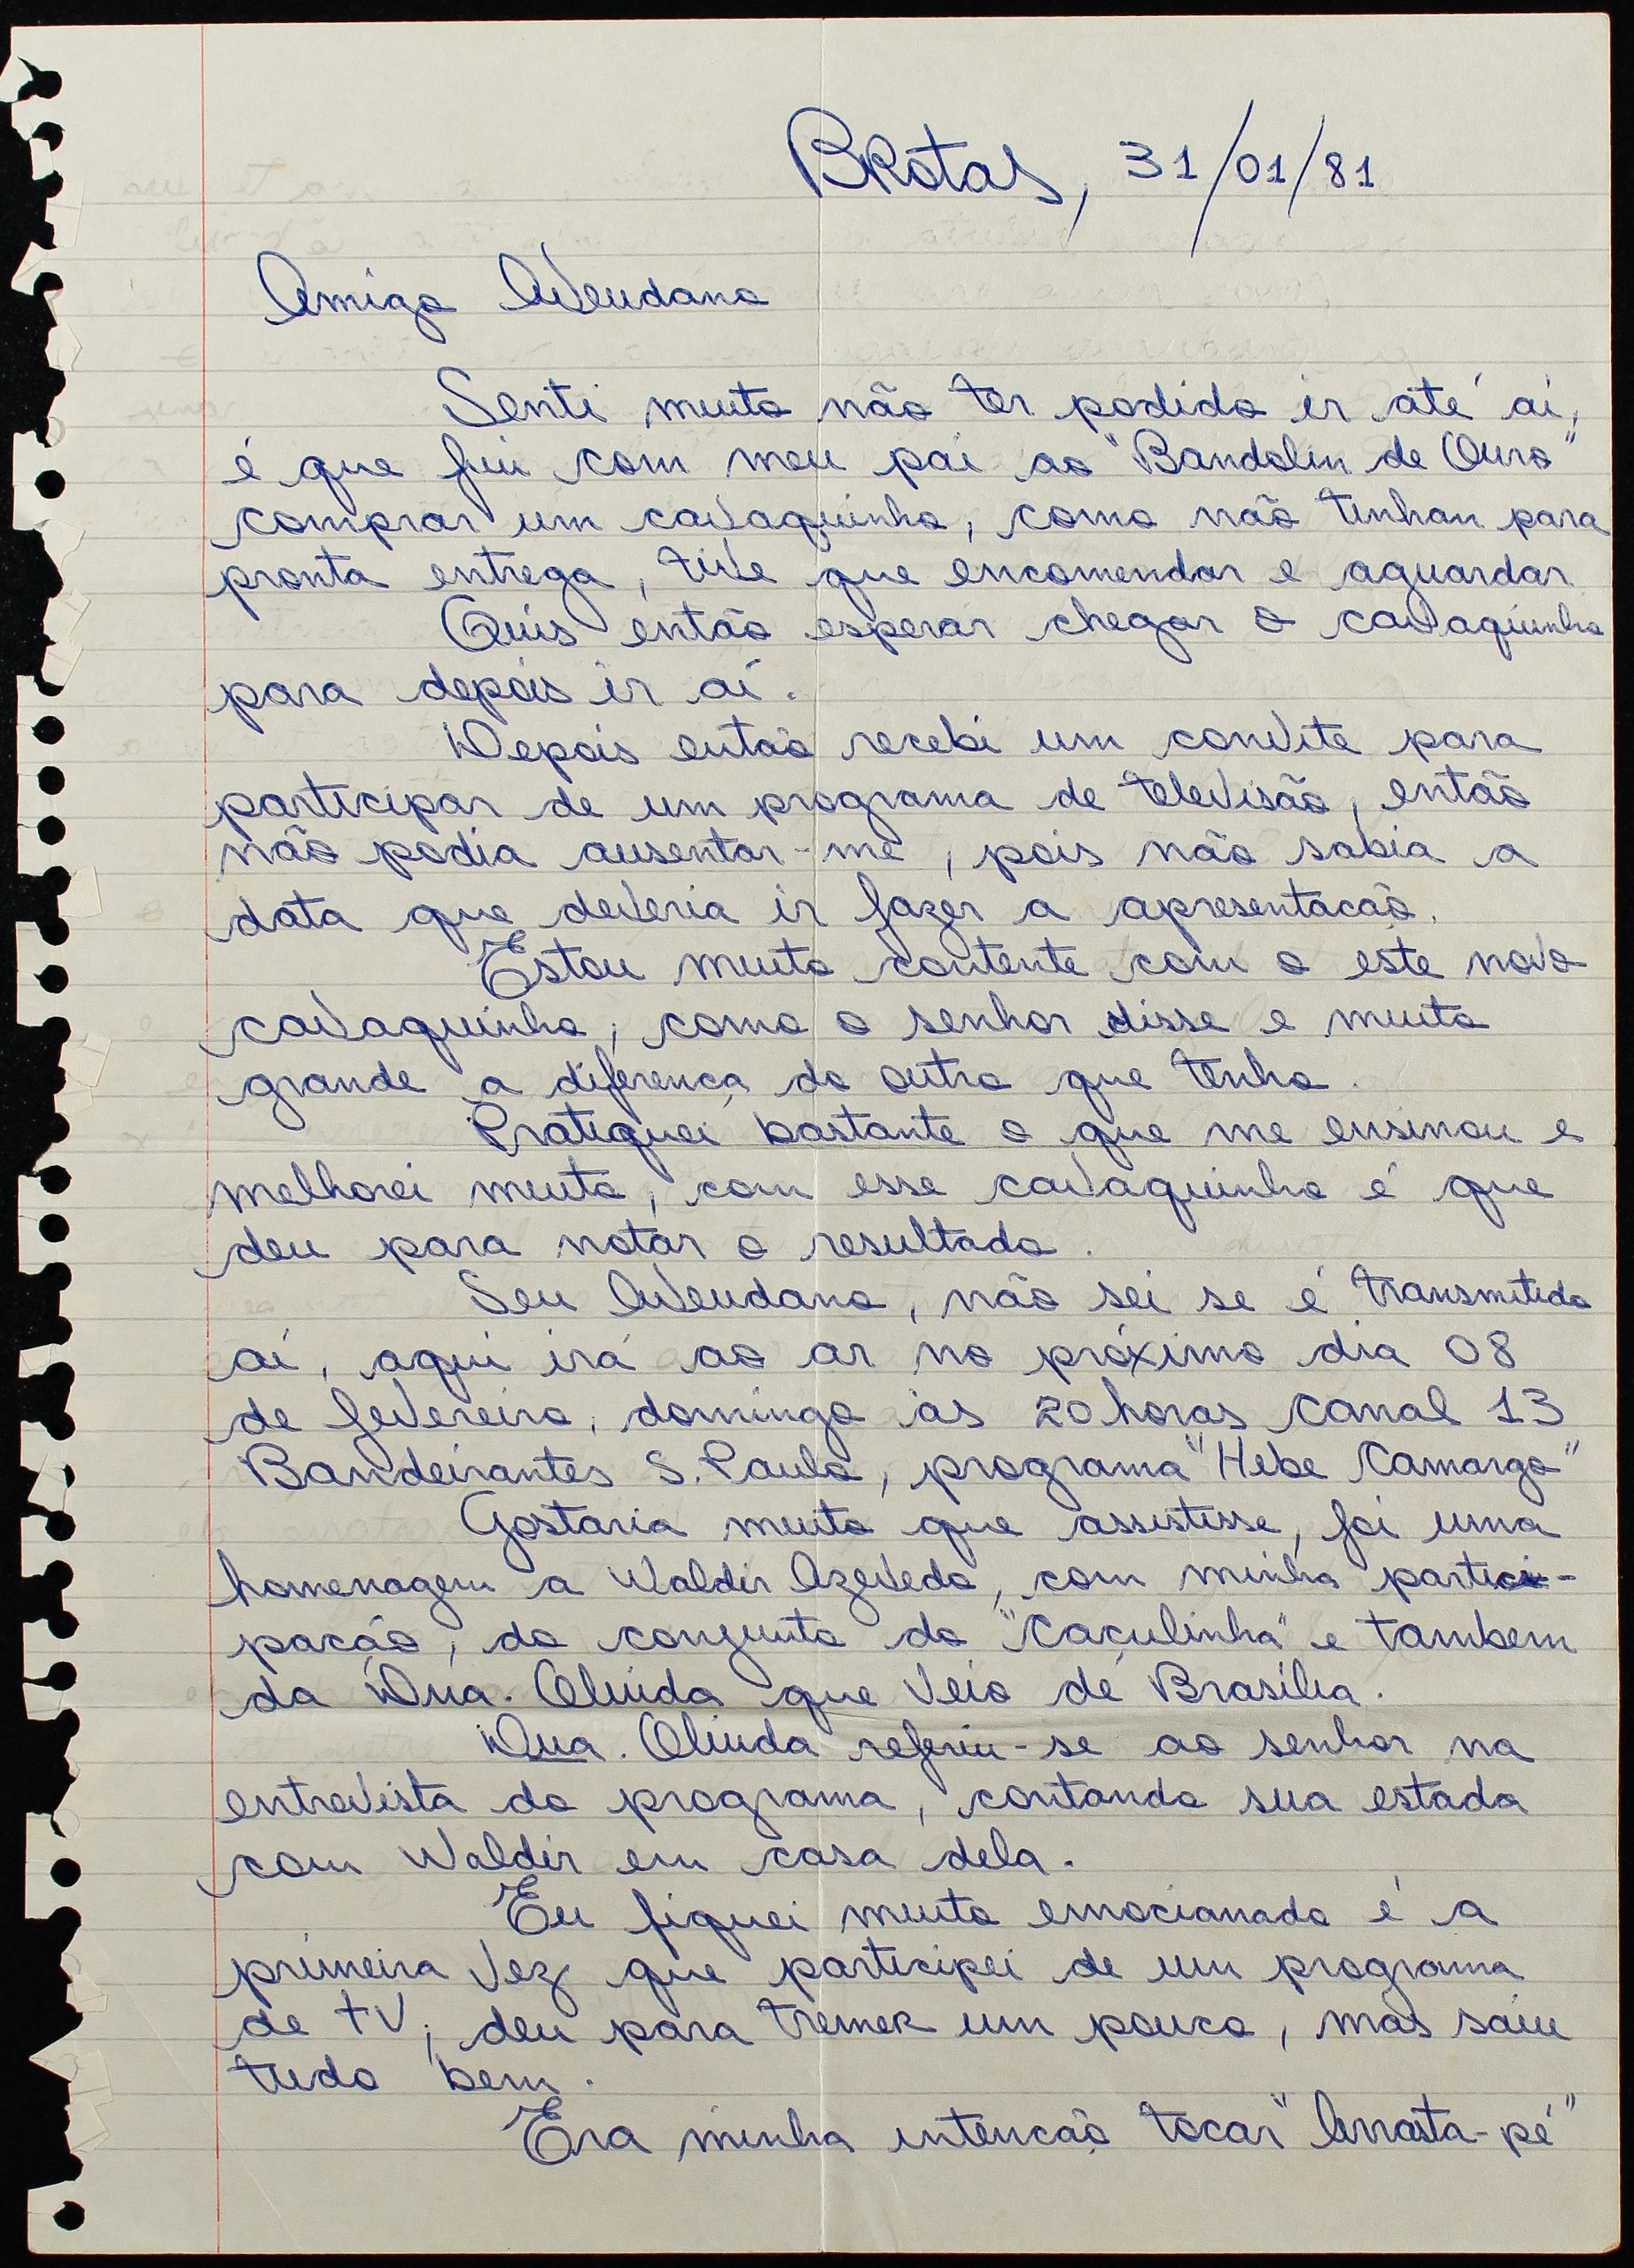 Brotas, 31/01/81
Amigo Avendano
Senti muito não ter podido ir até aí,
é que fui com meu pai ao "Bandolin de Ouro"
comprar um cavaquinho, como não tinham para
pronta entrega, tive que encomendar e aguardar
Quis então esperar chegar o cavaquinho
para depois ir aí.
Depois então recebi um convite para
participar de um programa de televisão, então
não podia ausentar-me, pois não sabia a
data que deveria ir fazer a apresentação.
Estou muito contente com o este novo
cavaquinho, como o senhor disse e muito
grande a diferença do outro que tenho.
Pratiquei bastante o que me ensinou e
melhorei muito, com esse cavaquinho é que
deu para notar o resultado.
Seu Avendano, não sei se é transmitido
aí, aqui irá ao ar no próximo dia 08
de fevereiro, domingo às 20 horas canal 13
Bandeirantes S. Paulo, programa "Hebe Camargo"
Gostaria muito que assistisse, foi uma
homenagem a Waldir Azevedo, com minha partici-
pação, do conjunto do "Caçulinha" e tambem
da Dna. Olinda que veio de Brasília.
Dna. Olinda referiu-se ao senhor na
entrevista do programa, contando sua estada
com Waldir em casa dela.
Eu fiquei muito emocionado é a
primeira vez que participei de um programa
de TV, deu para tremer um pouco, mas saiu
tudo bem.
Era minha intenção tocar "Arrasta-pé"